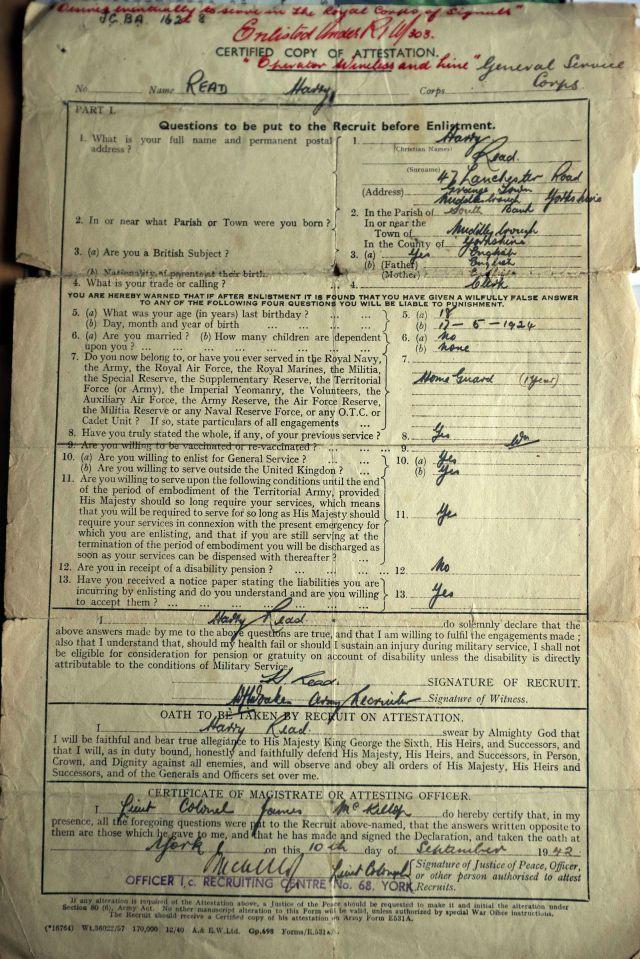 Desires eventually to serve in the Royal Corps of Signals"
Enlisted Under R.I.A/303.
CERTIFIED COPY OF ATTESTATION.
"Operator Wireless and Line" General Service Corps
No. Name READ Harry Corps
PART I.
Questions to be put to the Recruit before Enlistment.
1. What is your full name and permanent postal address ?
1. Harry
(Christian Names)
Read.
(Surname)
47 Lanchester Road
(Address) Grange Town
Middlesbrough Yorkshire
2. In or near what Parish or Town were you born ?
2. In the Parish of South Bank
In or near the
Town of Middlesbrough
In the County of Yorkshire
3. (a) Are you a British Subject ?
3. (a) Yes English
(b) Nationality of parents at their birth.
(b) (Father) English
(Mother) English
4. What is your trade or calling ?
4. Clerk
YOU ARE HEREBY WARNED THAT IF AFTER ENLISTMENT IT IS FOUND THAT YOU HAVE GIVEN A WILFULLY FALSE ANSWER
TO ANY OF THE FOLLOWING FOUR QUESTIONS YOU WILL BE LIABLE TO PUNISHMENT.
5. (a) What was your age (in years) last birthday ? 5. (a) 18
(b) Day, month and year of birth (b) 17-5-1924
6. (a) Are you married ? (b) How many children are dependent 6. (a) No
upon you ? (b) none
7. Do you now belong to, or have you ever served in the Royal Navy, 7.
the Army, the Royal Air Force, the Royal Marines, the Militia,
the Special Reserve, the Supplementary Reserve, the Territorial Home Guard (1 Year)
Force (or Army), the Imperial Yeomanry, the Volunteers, the
Auxiliary Air Force, the Army Reserve, the Air Force Reserve,
the Militia Reserve or any Naval Reserve Force, or any O.T.C. or
Cadet Unit ? If so, state particulars of all engagements
8. Have you truly stated the whole, if any, of your previous service ? 8. Yes
9. Are you willing to be vaccinated or re-vaccinated ? 9.
10. (a) Are you willing to enlist for General Service ? 10. (a) Yes
(b) Are you willing to serve outside the United Kingdom ? (b) Yes
11. Are you willing to serve upon the following conditions until the end
of the period of embodiment of the Territorial Army, provided
His Majesty should so long require your services, which means
that you will be required to serve for so long as His Majesty should
require your services in connexion with the present emergency for 11. Yes
which you are enlisting, and that if you are still serving at the
termination of the period of embodiment you will be discharged as
soon as your services can be dispensed with thereafter ?
12. Are you in receipt of a disability pension ? 12 No
13. Have you received a notice paper stating the liabilities you are
incurring by enlisting and do you understand and are you willing 13. Yes
to accept them ?
I Harry Read. do solemnly declare that the
above answers made by me to the above questions are true, and that I am willing to fulfil the engagements made ;
also that I understand that, should my health fail or should I sustain an injury during military service, I shall not
be eligible for consideration for pension or gratuity on account of disability unless the disability is directly
attributable to the conditions of Military Service
H. Read. SIGNATURE OF RECRUIT.
Army Recruiter Signature of Witness.
OATH TO BE TAKEN BY RECRUIT ON ATTESTATION.
I Harry Read. swear by Almighty God that
I will be faithful and bear true allegiance to His Majesty King George the Sixth, His Heirs, and Successors, and
that I will, as in duty bound, honestly and faithfully defend His Majesty, His Heirs, and Successors, in Person,
Crown, and Dignity against all enemies, and will observe and obey all orders of His Majesty, His Heirs and
Successors, and of the Generals and Officers set over me.
CERTIFICATE OF MAGISTRATE OR ATTESTING OFFICER.
I Lieut Colonel James McKillop do hereby certify that, in my
presence, all the foregoing questions were put to the Recruit above-named, that the answers written opposite to
them are those which he gave to me, and that he has made and signed the Declaration, and taken the oath at
York on this 10th day of September 1942
Lieut Colonel Signature of Justice of Peace, Officer,
or other person authorised to attest
OFFICER I,c. RECRUITING CENTRE No. 68, YORK Recruits.
If any alteration is required of the Attestation above, a Justice of the Peace should be requested to make it and initial the alteration under
Section 80 (6), Army Act. No other manuscript alteration to this Form will be valid, unless authorised by special War Office instructions.
The Recruit should receive a Certified copy of his attestation on Army Form E531A.
(*16764) Wt.36022/57 170,000 12/40 A.& E.W.Ltd. Gp.698 Forms/E.531A/